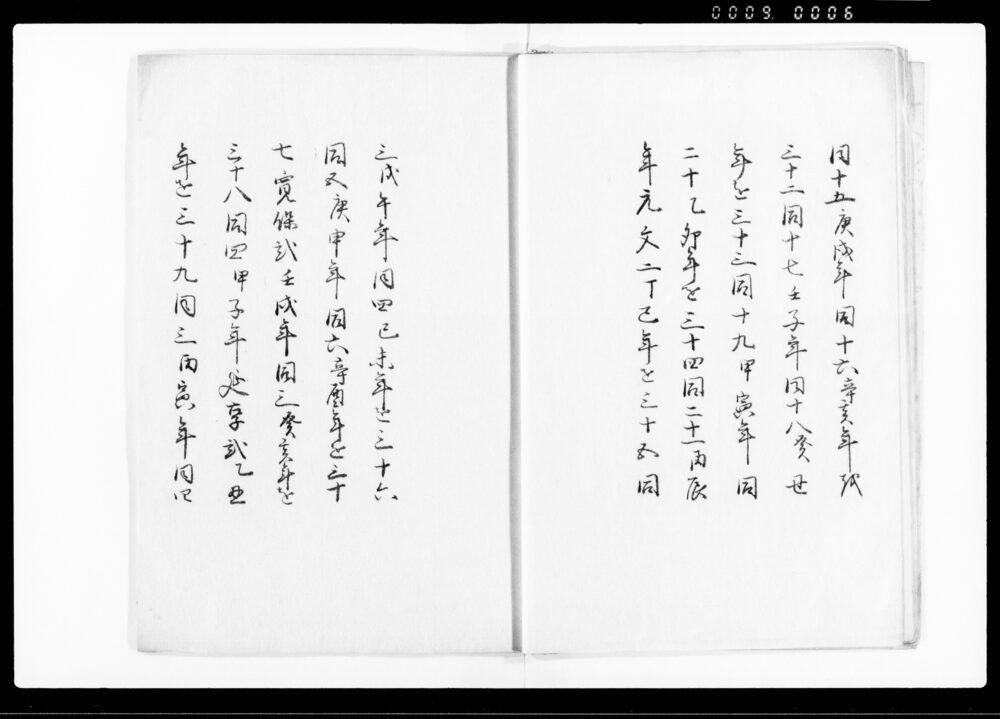 0009 0006
同十五庚戌年同十六辛亥年を
三十二同十七壬子年同十八癸丑
年を三十三同十九甲寅年同
二十乙卯年を三十四同二十一丙辰
年元文二丁巳年を三十五同
三戊午年同四己未年を三十六
同五庚申年同六辛酉年を三十
七寛保弐壬戌年同三癸亥年を
三十八同四甲子年延享弐乙丑
年を三十九同三丙寅年同四